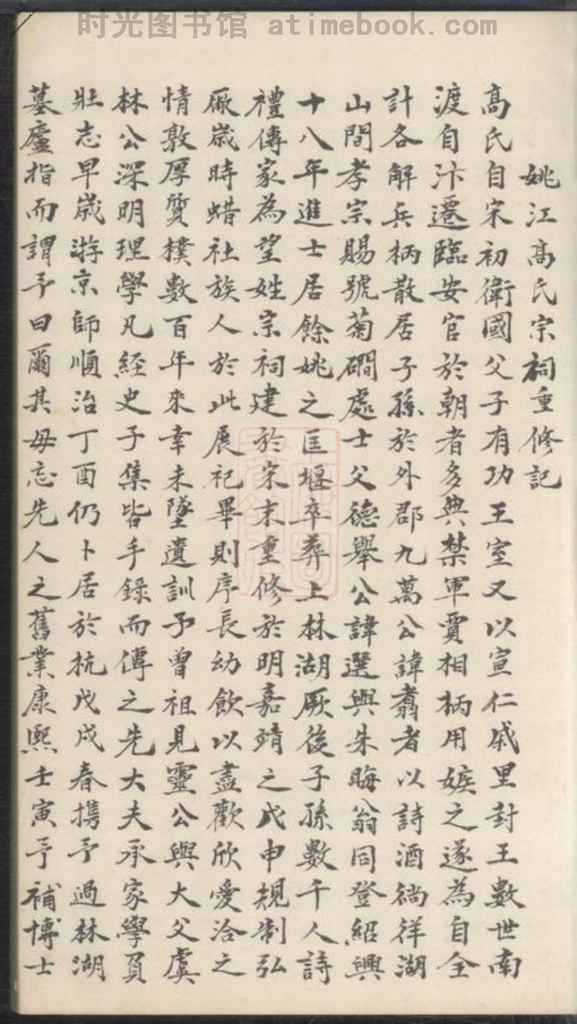 时光图书馆 atimebook.com
姚江高氏宗祠重修記
高氏自宋初衛國父子有功王室又以宣仁戚里封王數世南
渡自汴遷臨安官於朝者多典禁軍賈相柄用嫉之遂為自全
計各解兵柄散居子孫於外郡九萬公諱翥者以詩酒徜徉湖
山間孝宗賜號菊磵處士父德舉公諱選與朱晦翁同登紹興
十八年進士居餘姚之匡堰卒葬上林湖厥後子孫數千人詩
禮傳家為望姓宗祠建於宋末重修於明嘉靖之戊申規制弘
厰歲時蜡社族人於此展祀畢則序長幼飲以盡歡欣愛洽之
情敦厚質樸數百年來幸未墜遺訓予曾祖見靈公與大父虞
林公深明理學凡經史子集皆手錄而傳之先大夫承家學負
壯志早歲游京師順治丁酉仍卜居於杭戊戌春攜予過林湖
墓廬指而謂予曰爾其毋忘先人之舊業康熙壬寅予補博士